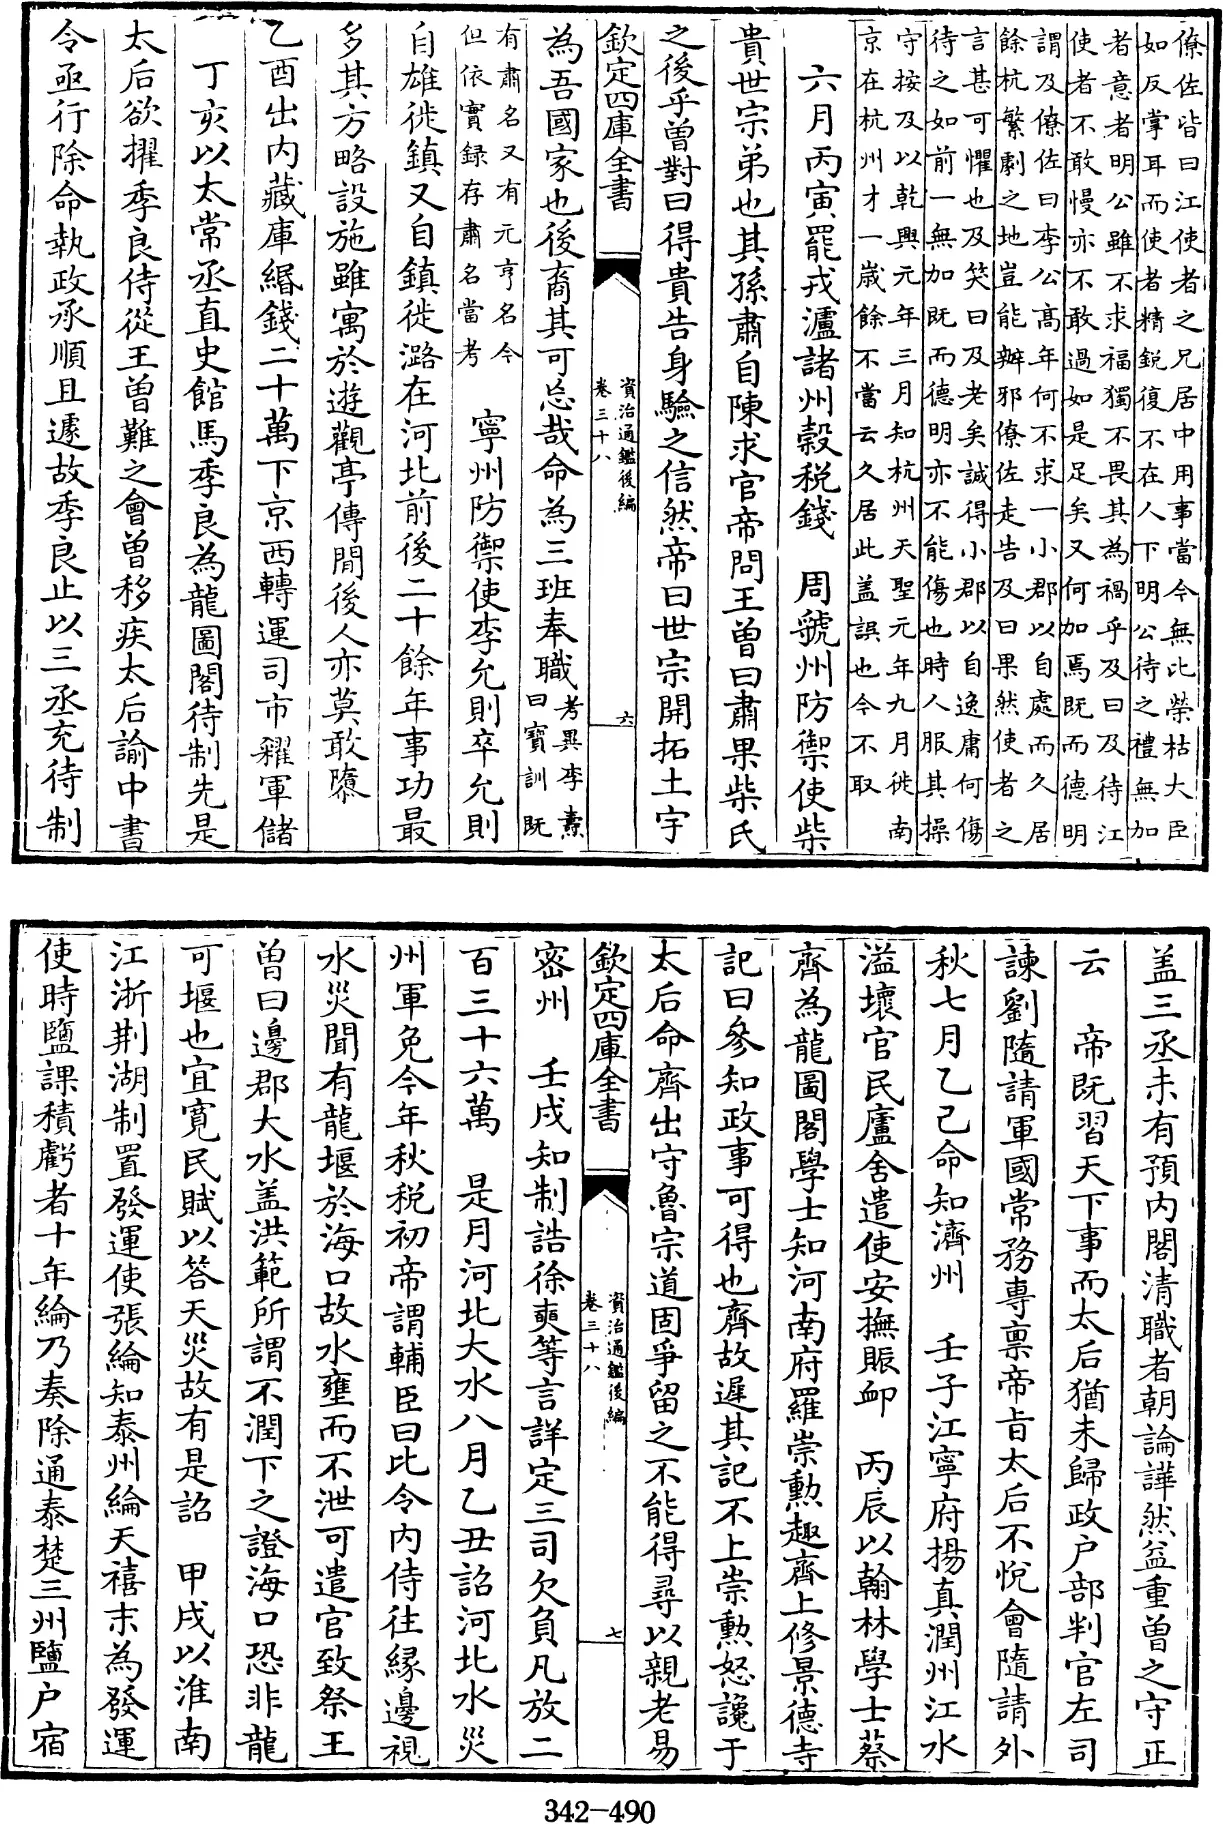 僚佐皆曰江使者之兄居中用事當今無比榮枯大臣
如反掌耳而使者精銳復不在人下明公待之禮無加
者意者明公雖不求福獨不畏其為禍乎及曰及待江
使者不敢慢亦不敢過如是足矣又何加焉既而德明
謂及僚佐曰李公髙年何不求一小郡以自處而久居
餘杭繁劇之地豈能辦邪僚佐走告及曰果然使者之
言甚可懼也及笑曰及老矣誠得小郡以自逸庸何傷
待之如前一無加既而德明亦不能傷也時人服其操
守按及以乾興元年三月知杭州天聖元年九月徙南
京在杭州才一嵗餘不當云久居此盖誤也今不取
六月丙寅罷戎瀘諸州榖税錢　周虢州防禦使柴
貴世宗弟也其孫肅自陳求官帝問王曽曰肅果柴氏
之後乎曽對曰得貴告身驗之信然帝曰世宗開拓土宇
欽定四庫全書
資治通鑑後編
卷三十八
六
為吾國家也後裔其可忘哉命為三班奉職考異李燾曰寶訓既
有肅名又有元亨名今但依實録存肅名當考　寧州防禦使李允則卒允則
自雄徙鎮又自鎮徙潞在河北前後二十餘年事功最
多其方略設施雖寓於遊觀亭傳間後人亦莫敢隳
乙酉出内藏庫緡錢二十萬下京西轉運司市糴軍儲
丁亥以太常丞直史館馬季良為龍圖閣待制先是
太后欲擢季良侍從王曽難之會曽移疾太后諭中書
令亟行除命執政承順且遽故季良止以三丞充待制
盖三丞未有預内閣清職者朝論譁然益重曽之守正
云　帝既習天下事而太后猶未歸政户部判官左司
諫劉隨請軍國常務專稟帝旨太后不悦會隨請外
秋七月乙己命知濟州　壬子江寧府揚真潤州江水
溢壊官民廬舍遣使安撫賑卹　丙辰以翰林學士蔡
齊為龍圖閣學士知河南府羅崇勲趣齊上修景德寺
記曰參知政事可得也齊故遲其記不上崇勲怒讒于
太后命齊出守魯宗道固爭留之不能得尋以親老易
欽定四庫全書
資治通鑑後編
卷三十八
七
密州　壬戌知制誥徐奭等言詳定三司欠負凡放二
百三十六萬　是月河北大水八月乙丑詔河北水災
州軍免今年秋税初帝謂輔臣曰比令内侍往緣邊視
水災聞有龍堰於海口故水壅而不泄可遣官致祭王
曽曰邊郡大水盖洪範所謂不潤下之證海口恐非龍
可堰也宜寛民賦以答天災故有是詔　甲戌以淮南
江浙荆湖制置發運使張綸知泰州綸天禧末為發運
使時鹽課積虧者十年綸乃奏除通泰楚三州鹽户宿
342-490